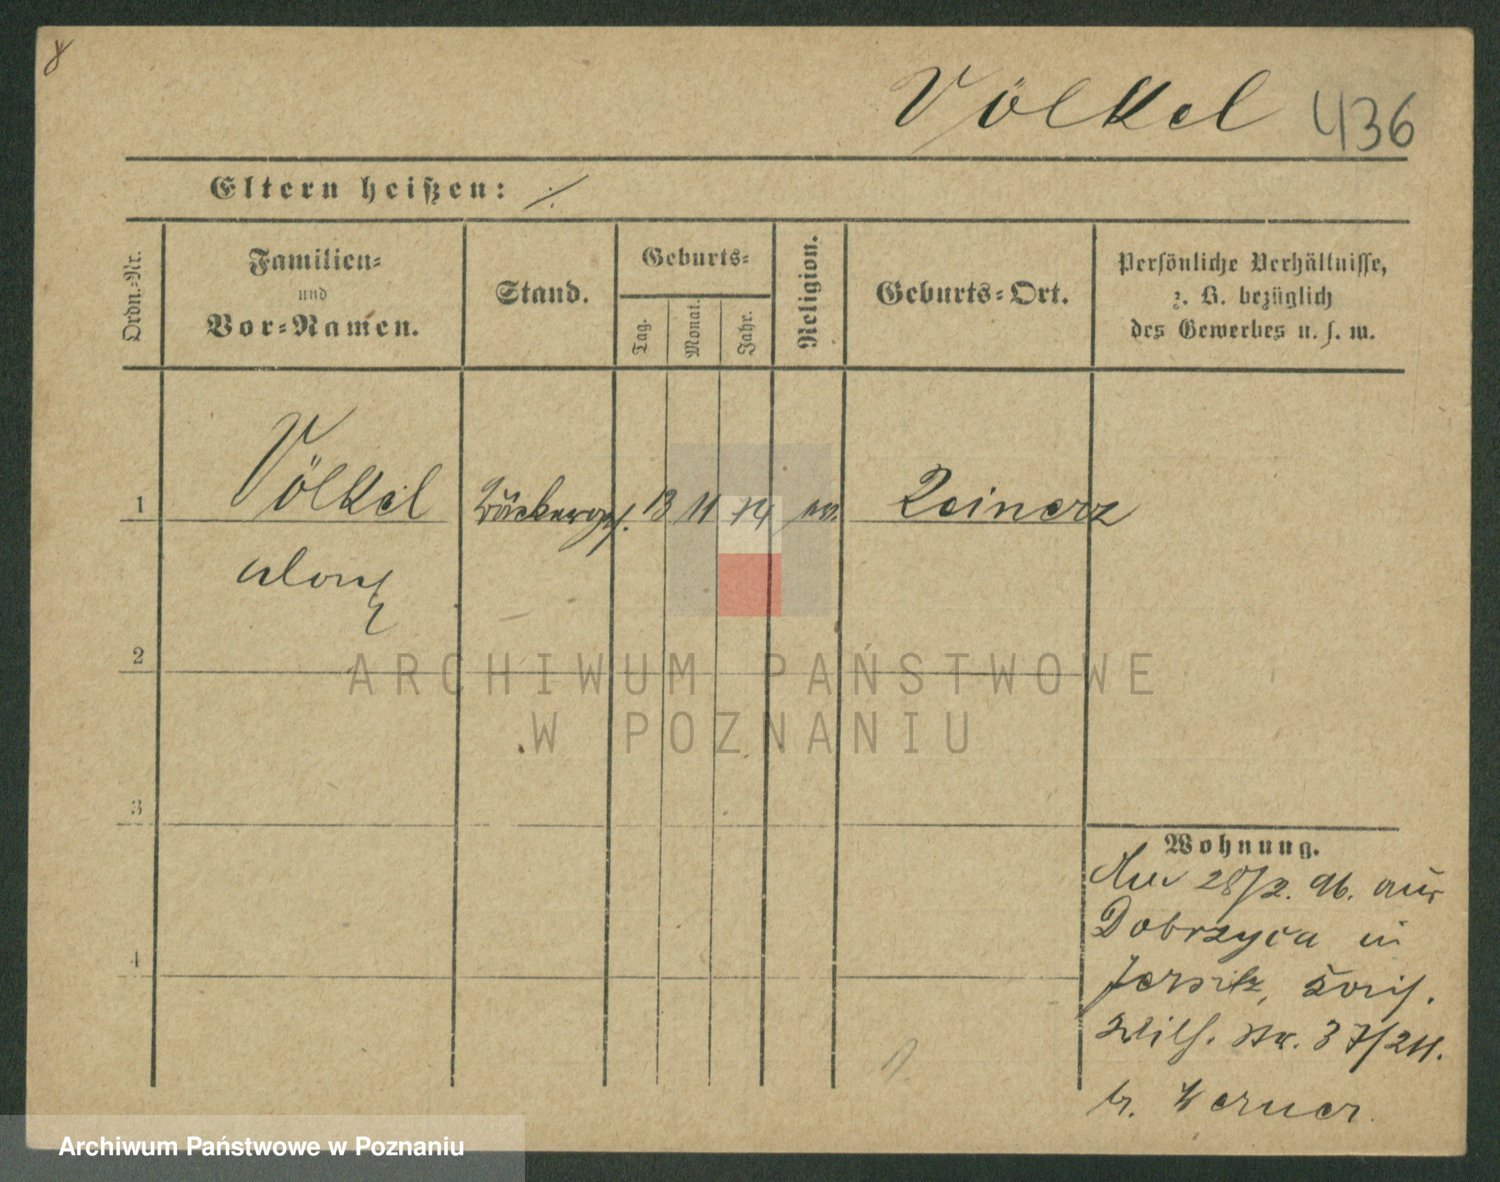 8
Völkel 436
Eltern heißen: ./.
Ordn.-Nr.
Familien-
und
Vor-Namen.
Stand.
Geburts-
Tag.
Monat.
Jahr.
Religion.
Geburts-Ort.
Persönliche Verhältnisse,
z. B. bezüglich
des Gewerbes u. s. w.
1 Völkel Bäckerges. 13 11 74 Reinerz
2
3
4
ARCHIWUM PAŃSTWOWE
W POZNANIU
Wohnung.
28/2. 96. aus
Dobrzyca in
Jersitz,
Wilh. Str. 37/2
b. Werner
Archiwum Państwowe w Poznaniu